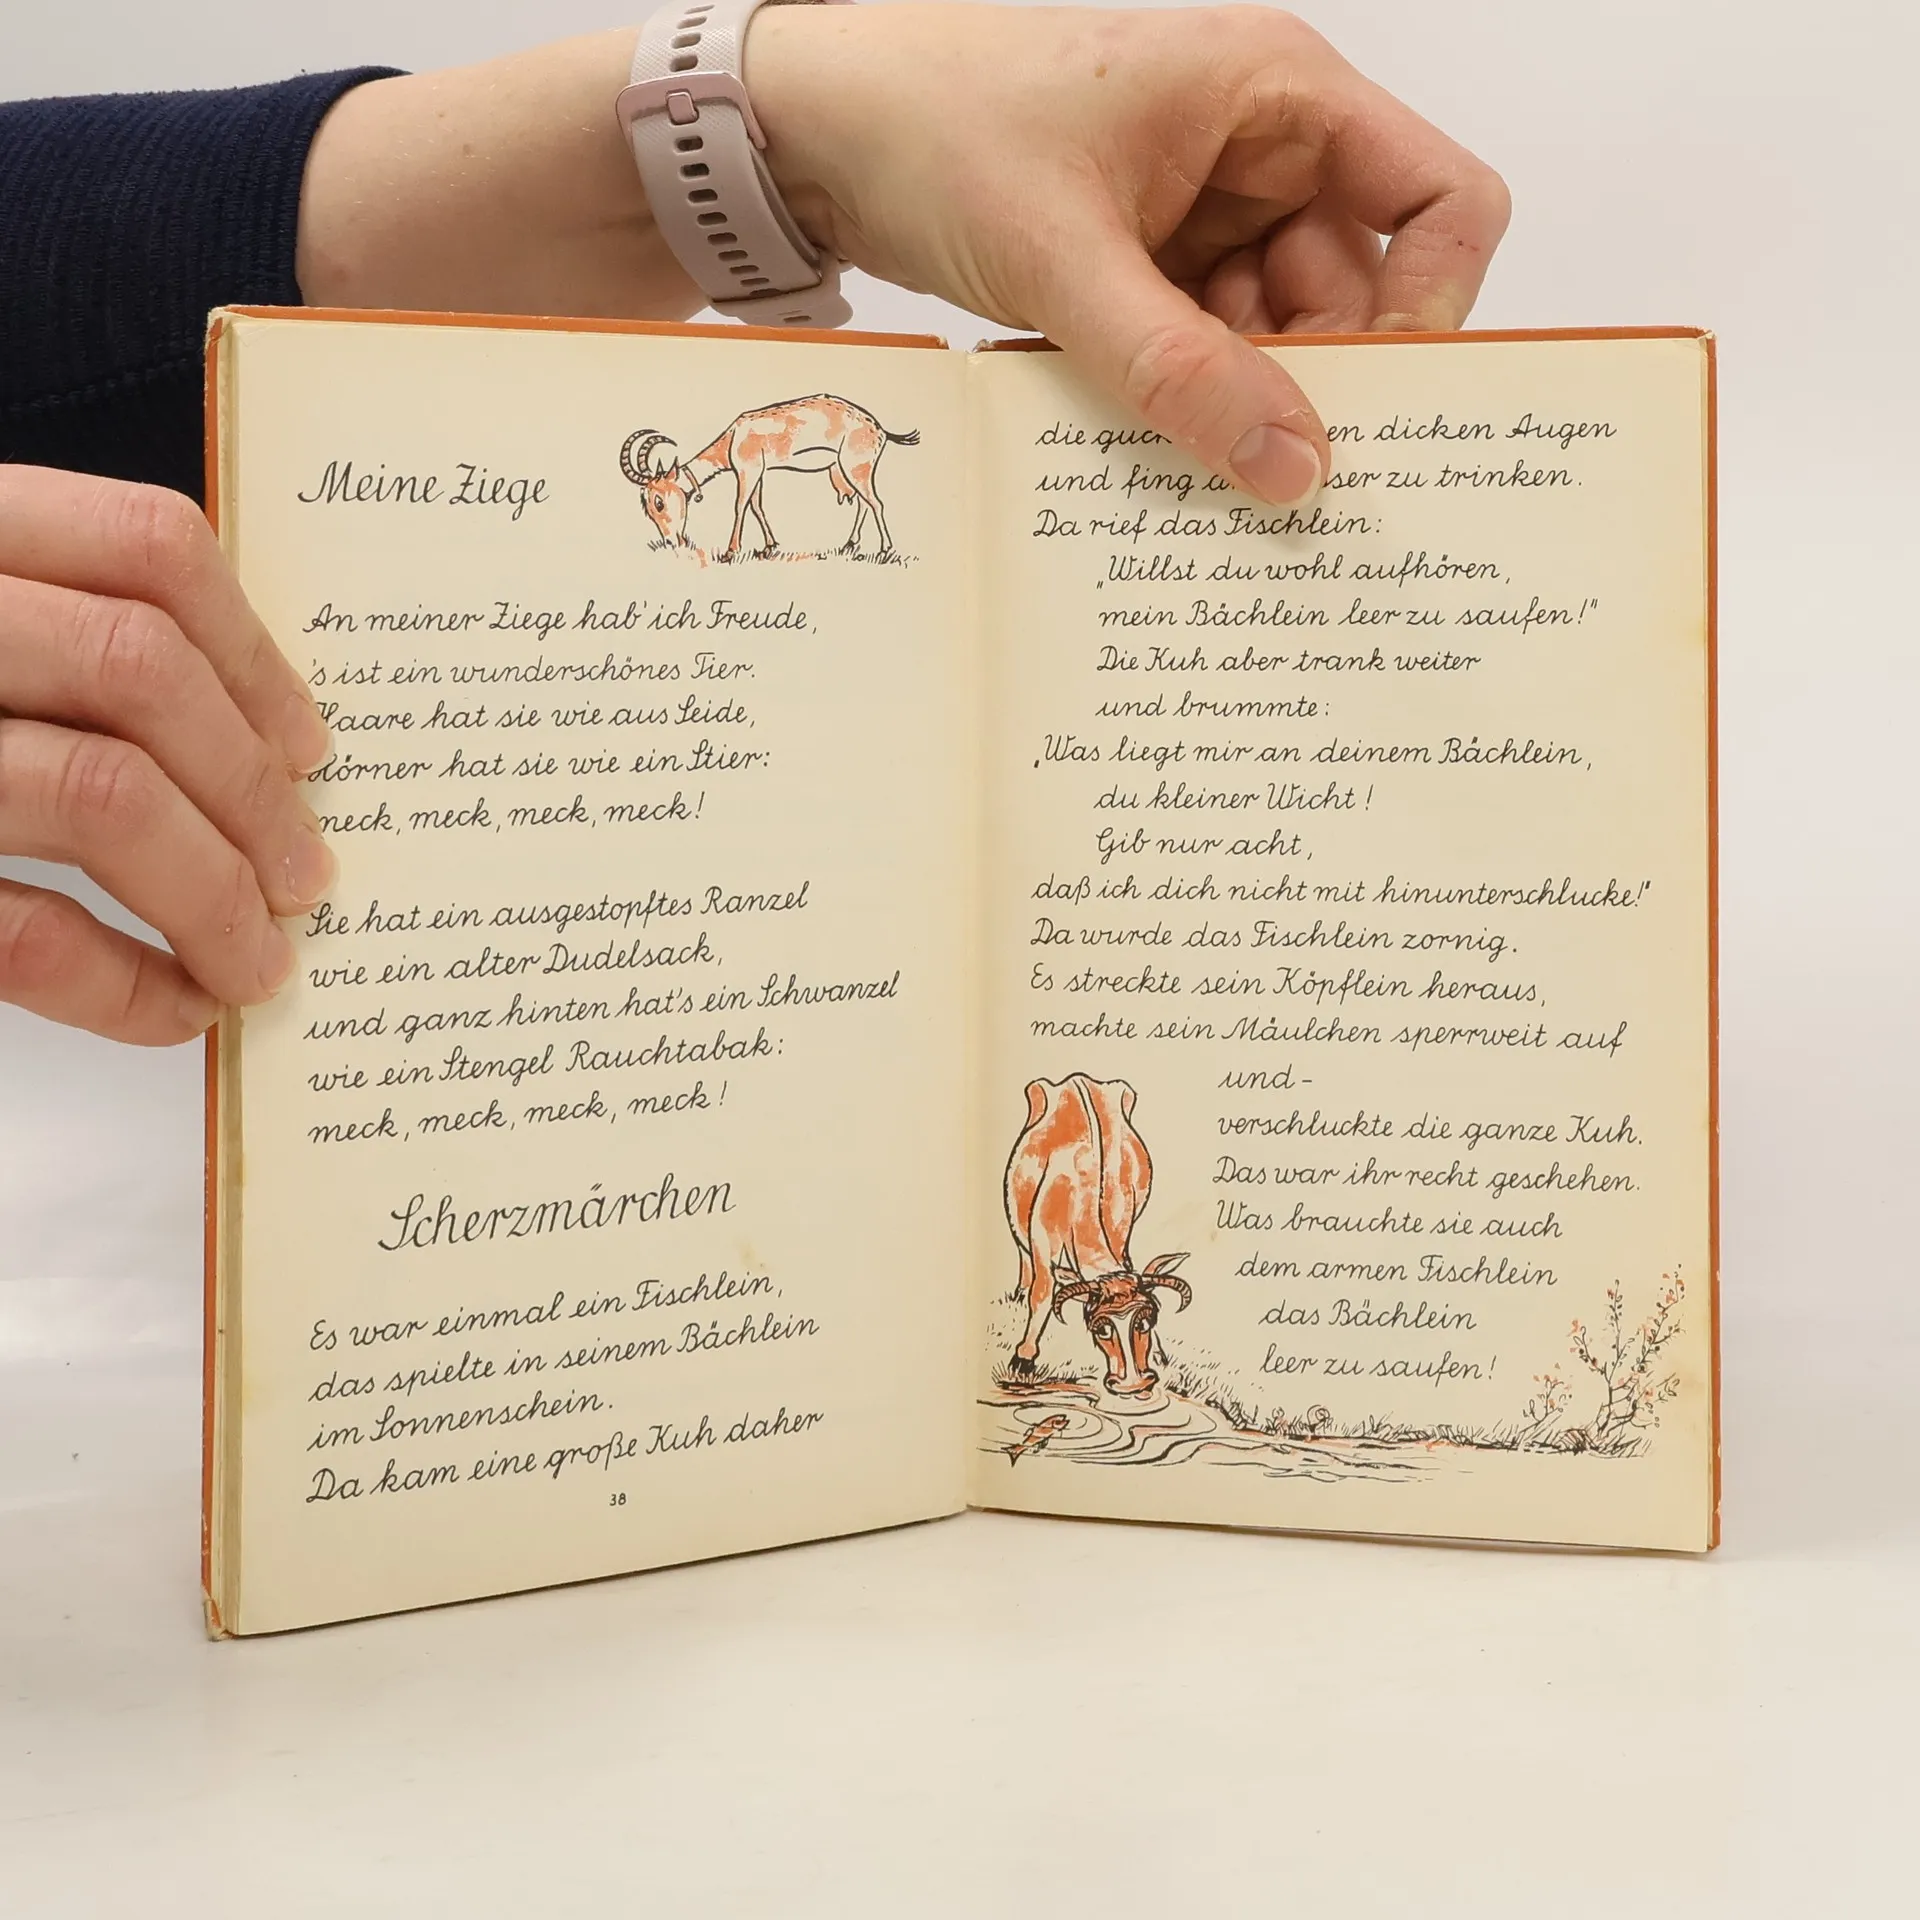 Meine Ziege
An meiner Ziege hab' ich Freude,
's ist ein wunderschönes Tier.
Haare hat sie wie aus Seide,
Hörner hat sie wie ein Stier:
meck, meck, meck, meck!
Sie hat ein ausgestopftes Ranzel
wie ein alter Dudelsack,
und ganz hinten hat's ein Schwanzel
wie ein Stengel Rauchtabak:
meck, meck, meck, meck!
Scherzmärchen
Es war einmal ein Fischlein,
das spielte in seinem Bächlein
im Sonnenschein.
Da kam eine große Kuh daher
38
die dicken Augen
und fing zu trinken.
Da rief das Fischlein:
„Willst du wohl aufhören,
mein Bächlein leer zu saufen!"
Die Kuh aber trank weiter
und brummte:
„Was liegt mir an deinem Bächlein,
du kleiner Wicht!
Gib nur acht,
daß ich dich nicht mit hinunterschlucke!"
Da wurde das Fischlein zornig.
Es streckte sein Köpflein heraus,
machte sein Mäulchen sperrweit auf
und-
verschluckte die ganze Kuh.
Das war ihr recht geschehen.
Was brauchte sie auch
dem armen Fischlein
das Bächlein
leer zu saufen!